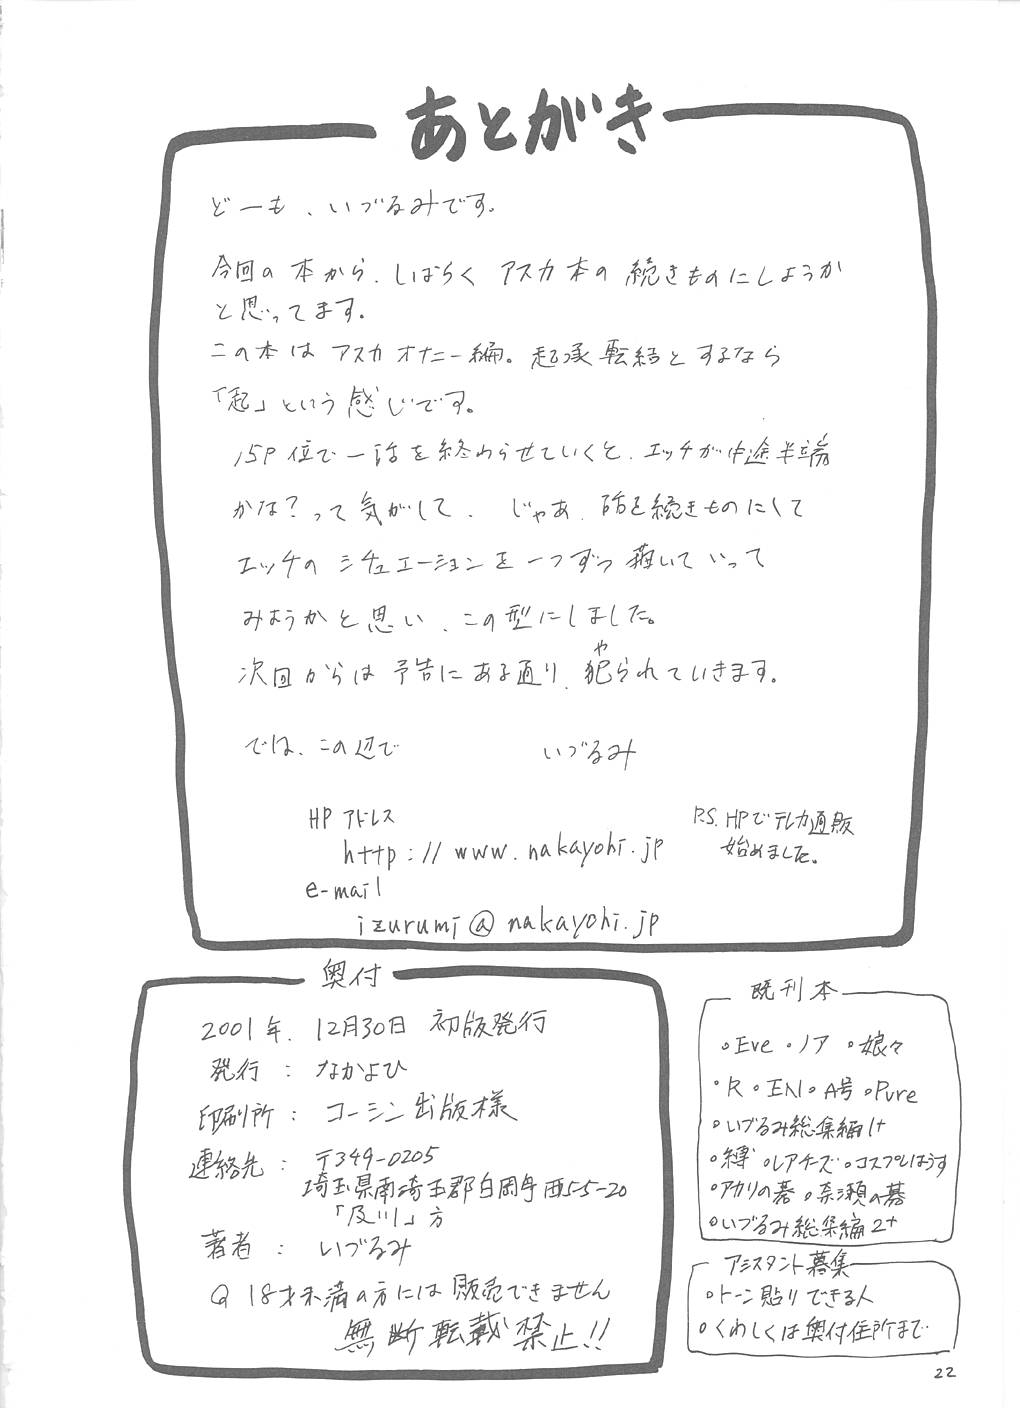 あとがき
どーも、いづるみです。
今回の本から、しばらくアスカ本の続きものにしようか
と思ってます。
この本はアスカオナニー編。起承転結とするなら
「起」という感じです。
15P位で一話を終わらせていくと、エッチが中途半端
かな?って気がして、じゃあ、話を続きものにして
エッチのシチュエーションを一つずつ描いていって
みようかと思い、この型にしました。
次回からは予告にある通り、犯られていきます。
や
では、この辺で いづるみ
HPアドレス
http://www.nakayohi.jp
e-mail
izurumi@nakayohi.jp
P.S. HPでテレカ通販
始めました。
奥付
2001年.12月30日 初版発行
発行:なかよひ
印刷所:コーシン出版様
連絡先:〒349-0205
埼玉県南埼玉郡白岡町西5-5-20
「及川」方
著者:いづるみ
18才未満の方には販売できません
無断転載禁止!!
既刊本
・Eve ・ノア ・娘々
・R ・EN ・A号 ・Pure
・いづるみ総集編1+
・縛 ・レアチーズ ・コスプレはうす
・アカリの碁 ・奈瀬の碁
・いづるみ総集編2+
アシスタント募集
・トーン貼りできる人
・くわしくは奥付住所まで
22